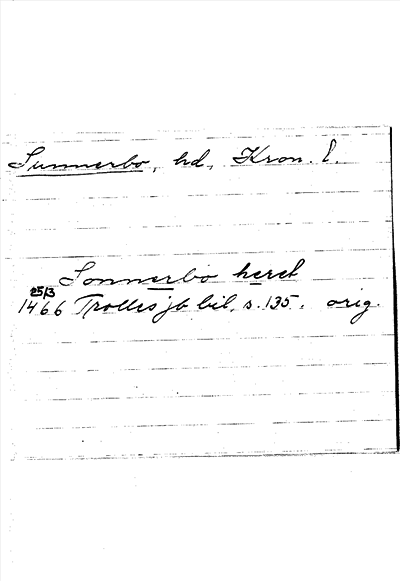 Sunnerbo, hd, Kron. l.
Sonnerbo heret
25/3
1466 Trolles jb bil, s. 135. orig.